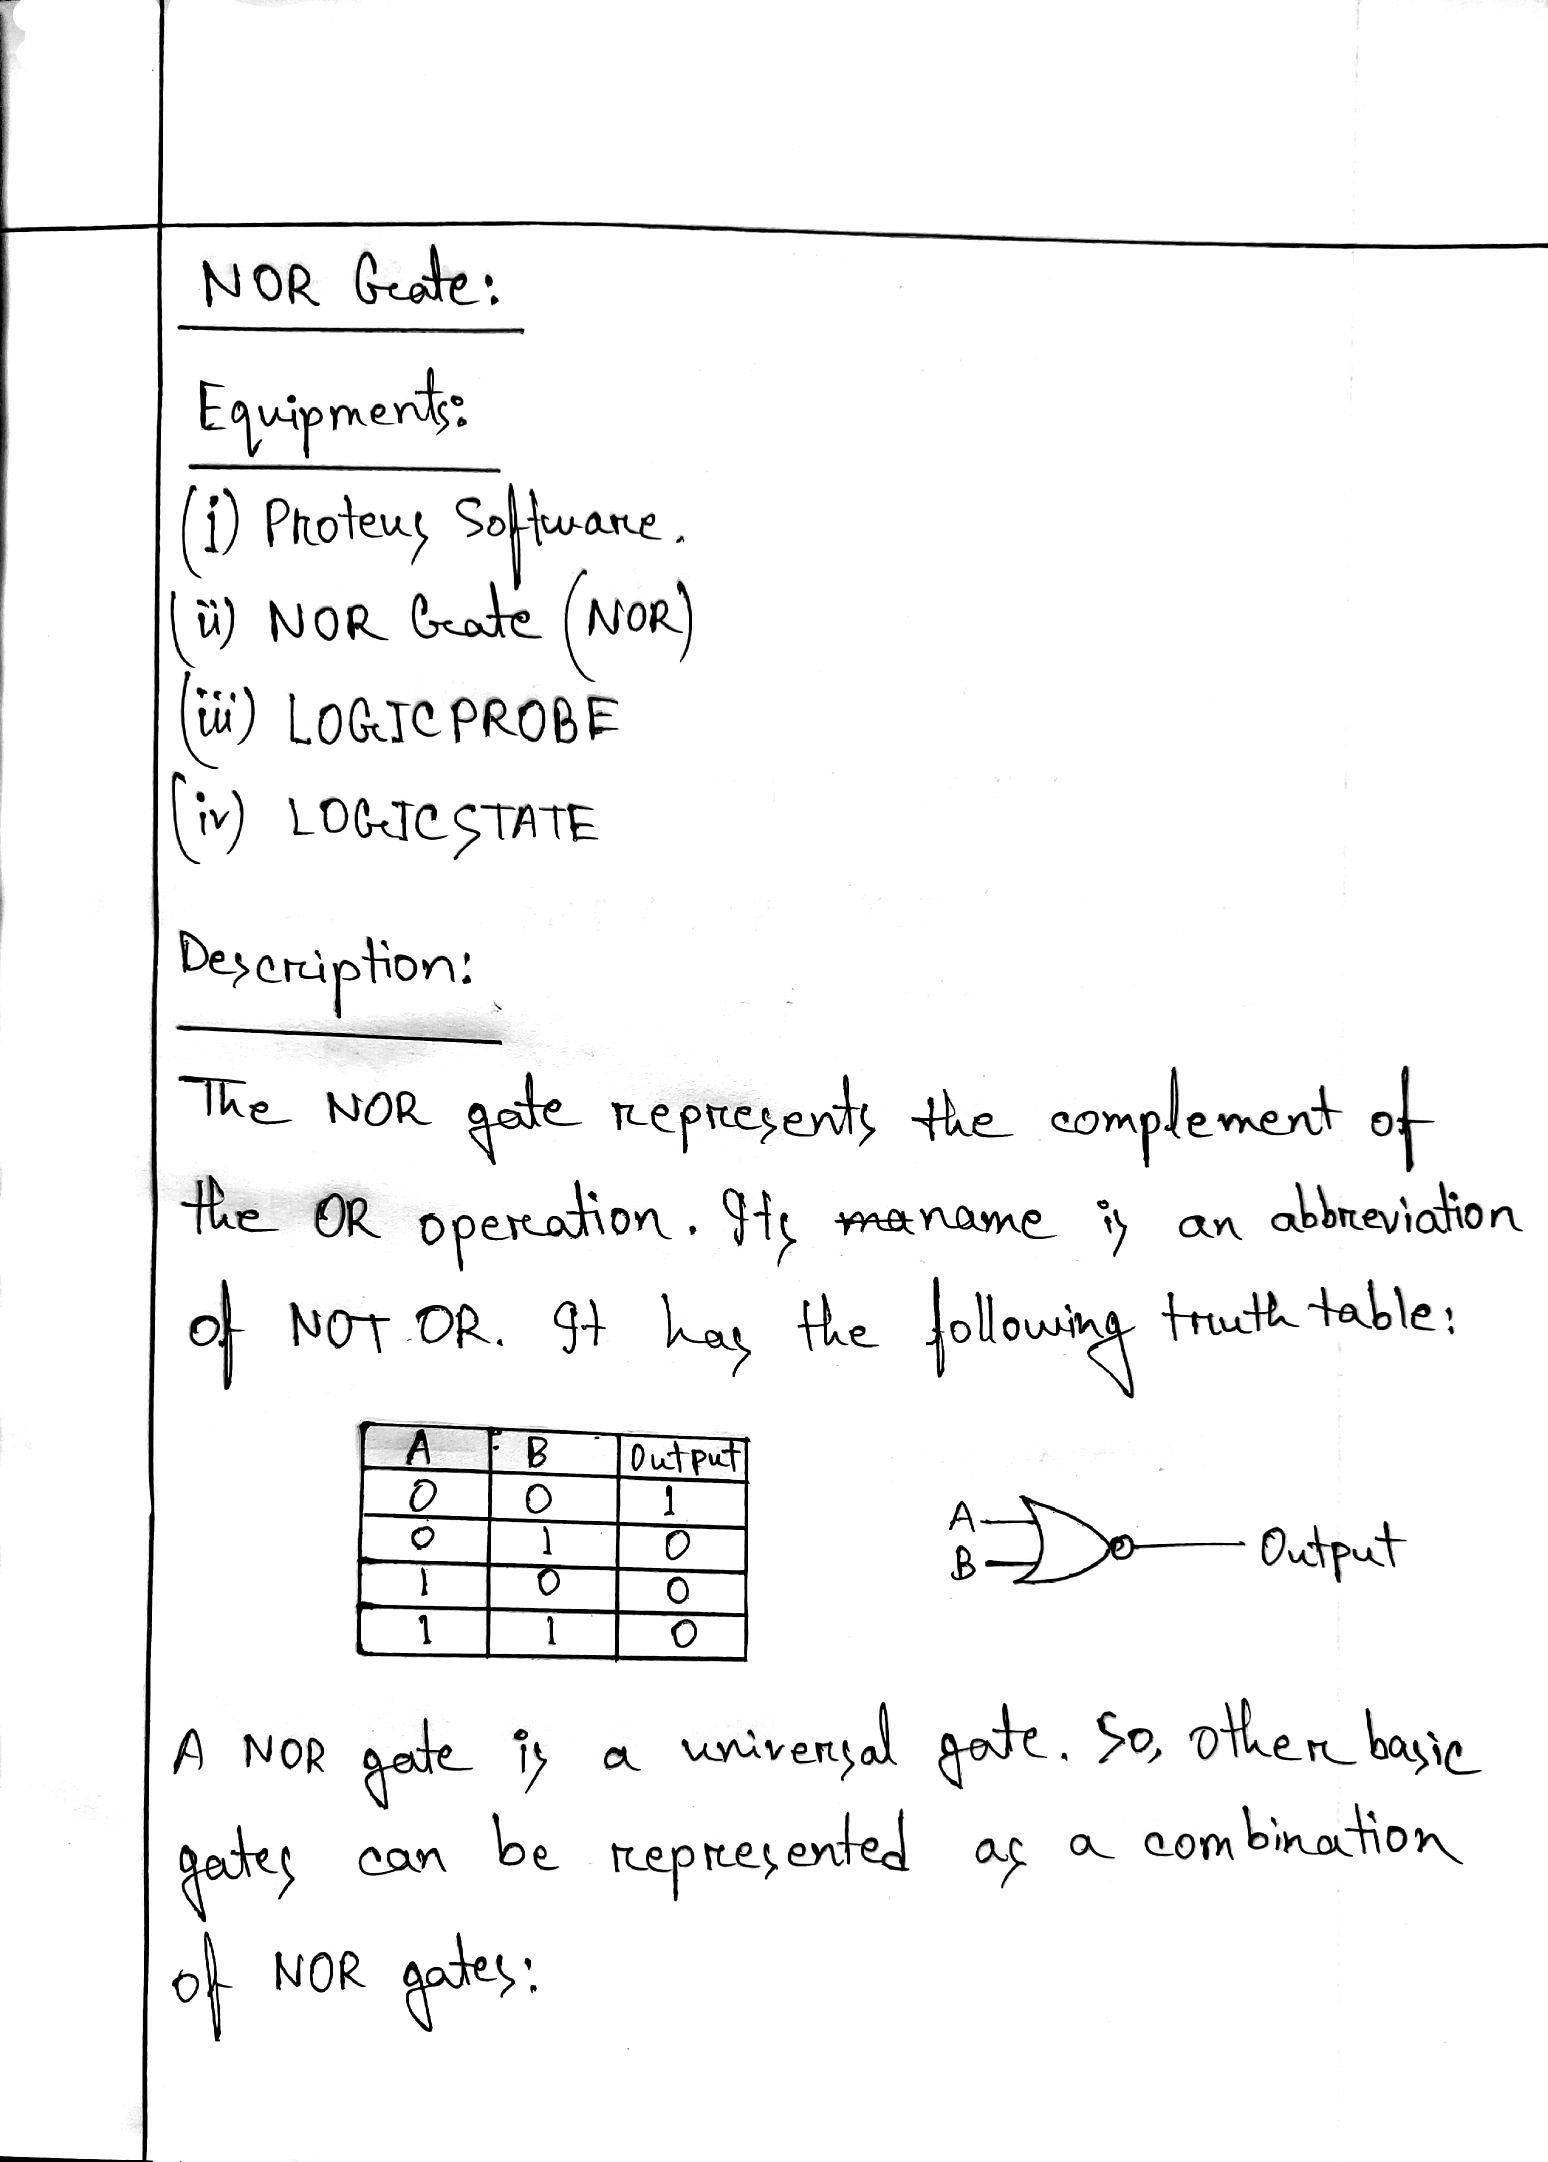 NOR Gate:
Equipments:
(i) Proteus Software.
(ii) NOR Gate (NOR)
(iii) LOGICPROBE
(iv) LOGICSTATE
Description:
The NOR gate represents the complement of
the OR operation. Its ma name is an abbreviation
of NOT OR. It has the following truth table:
A B Output
0 0 1
0 1 0
1 0 0
1 1 0
A
B
Output
A NOR gate is a universal gate. So, other basic
gates can be represented as a combination
of NOR gates: